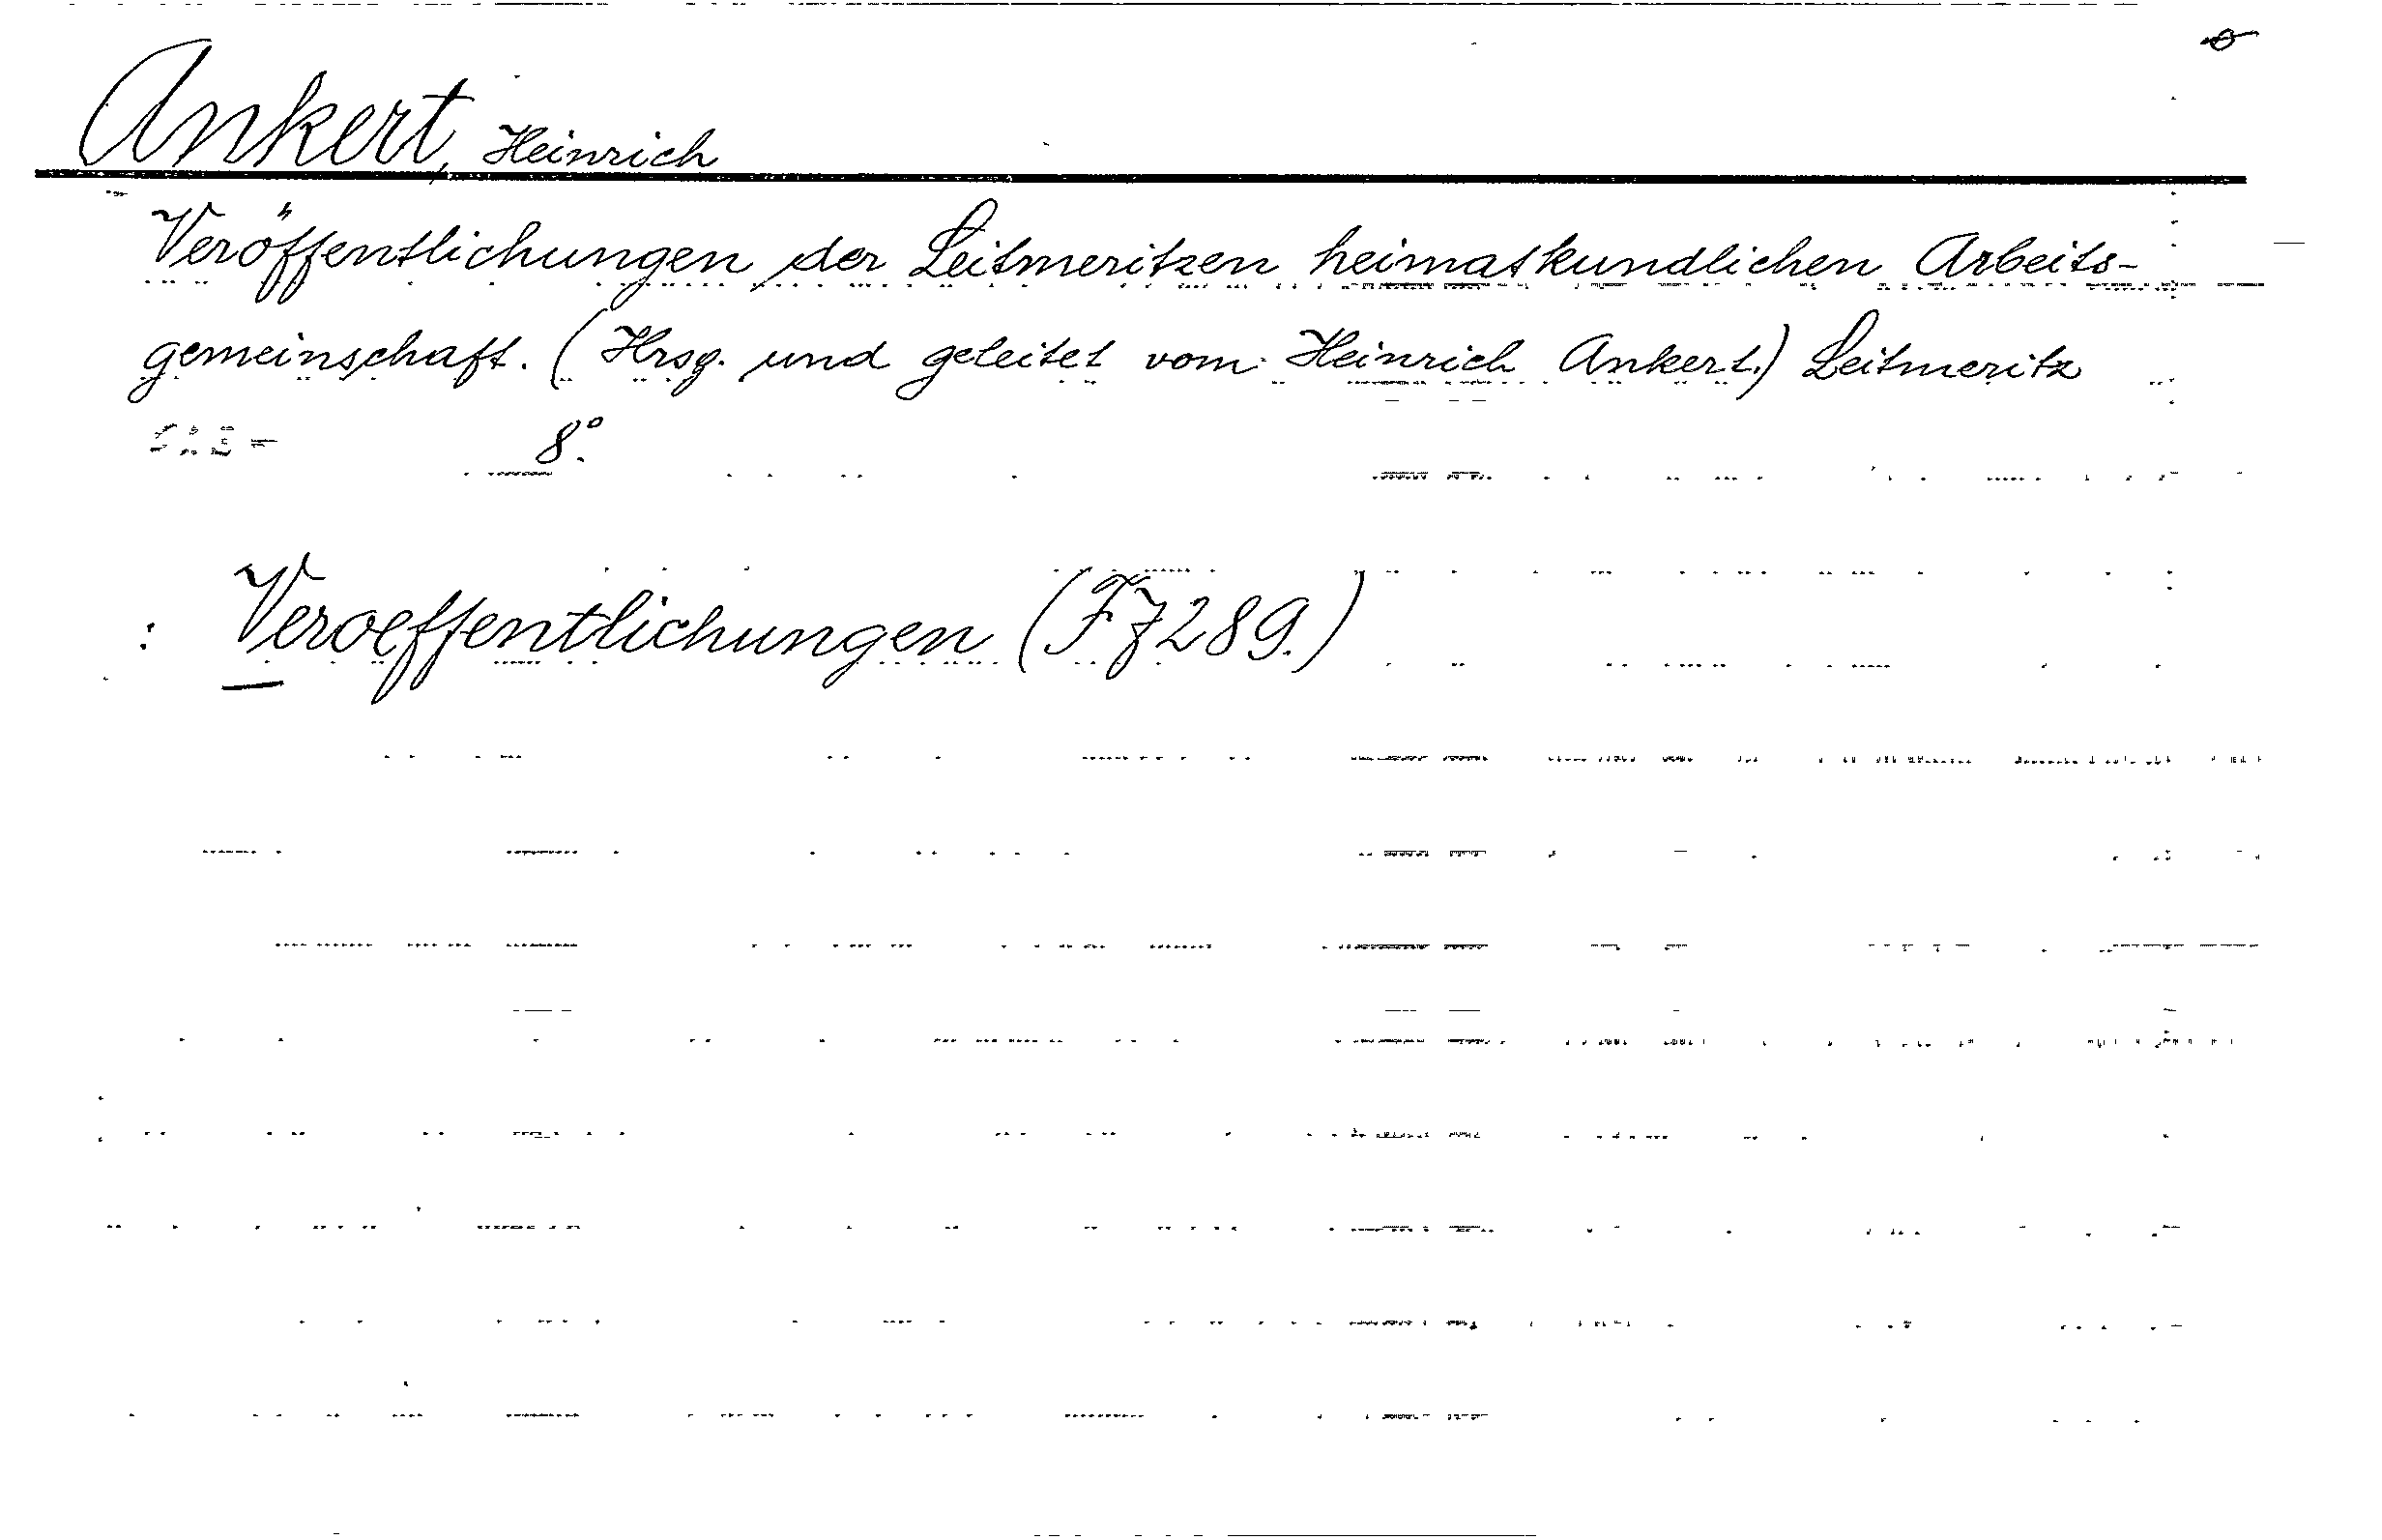 Ankert, Heinrich
Veröffentlichungen der Leitmeritzen heimatkundlichen Arbeits-
gemeinschaft. (Hrsg. und geleitet vom Heinrich Ankert.) Leitmeritz
8°.
: Veroeffentlichungen (F7289.)